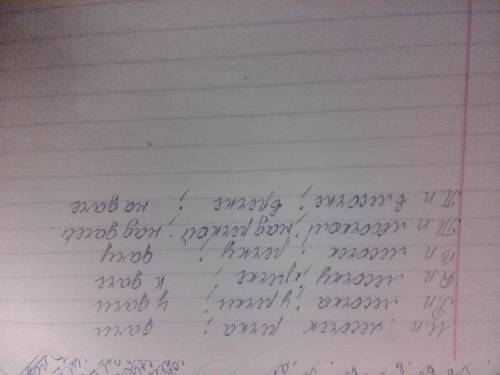 И.п лесочек речка ; дачи
Р.п лесочка ; у речки ; у дачи
Д.п лесочку ; к речке ; к даче
В.п лесочек ; речку ; дачу
Т.п лесочком ; над речкой ; над дачей
П.п в лесочке ; в речке ; на даче